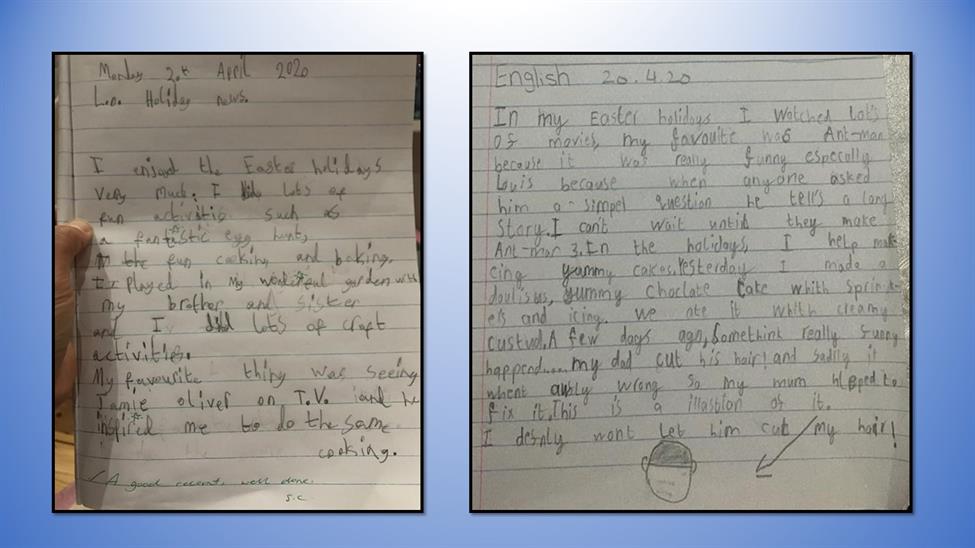 Monday 20th April 2020
L.o. Holiday news.
I enjoyd the Easter holidays
very much. I did lots of
fun activitis such as
a fantastic egg hunt,
the fun cooking and baking.
I played in my wonderful garden with
my brother and sister
and I did lots of craft
activities.
My favourite thing was seeing
Jamie oliver on T.V. and he
inspired me to do the same
cooking.
A good recount, well done.
S.C.
English 20.4.20
In my Easter holidays I watched lot's
of movies, my favouite was Ant-man
because it was really funny especully
Louis because when anyone asked
him a simpel question he tell's a long
story. I can't wait until they make
Ant-man 3. In the holidays, I help make
cing yummy cakes. Yesterday I made a
doulisus, yummy choclate cake whith sprinkl-
els and icing. we ate it whith creamy
custud. A few days ago, Somethink really funny
happend..... my dad cut his hair! and sadily it
whent wrong so my mum helped to
fix it. This is a illastion of it.
I desnly wont let him cut my hair!